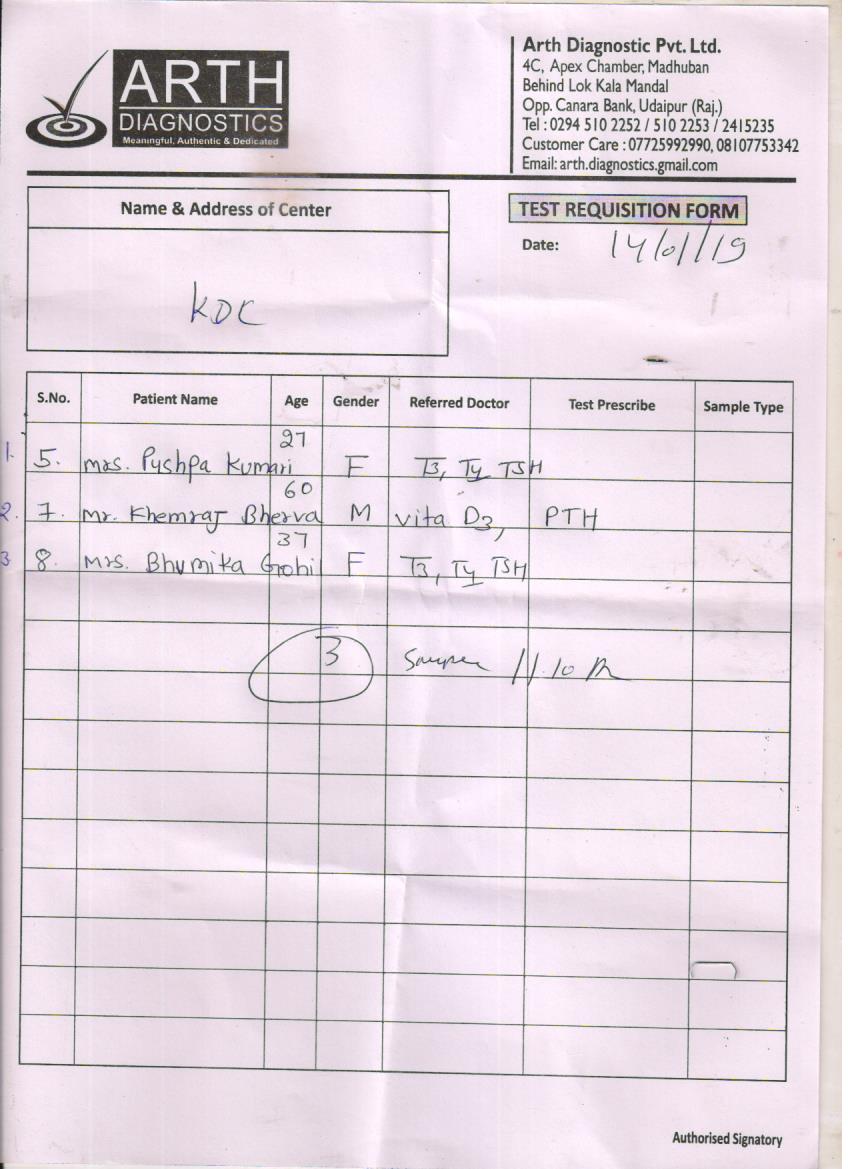 ARTH
DIAGNOSTICS
Meaningful, Authentic & Dedicated
Arth Diagnostic Pvt. Ltd.
4C, Apex Chamber, Madhuban
Behind Lok Kala Mandal
Opp. Canara Bank, Udaipur (Raj.)
Tel : 0294 510 2252 / 510 2253 / 2415235
Customer Care : 07725992990, 08107753342
Email: arth.diagnostics.gmail.com
Name & Address of Center
KDC
TEST REQUISITION FORM
Date: 14/01/19
S.No. Patient Name Age Gender Referred Doctor Test Prescribe Sample Type
1. 5. mrs. Pushpa Kumari 27 F T3, T4 TSH
2. 7. Mr. Khemraj Bherva 60 M vita D3, PTH
3 8. Mrs. Bhumika Gohil 37 F T3, T4 TSH
3 11.10
Authorised Signatory